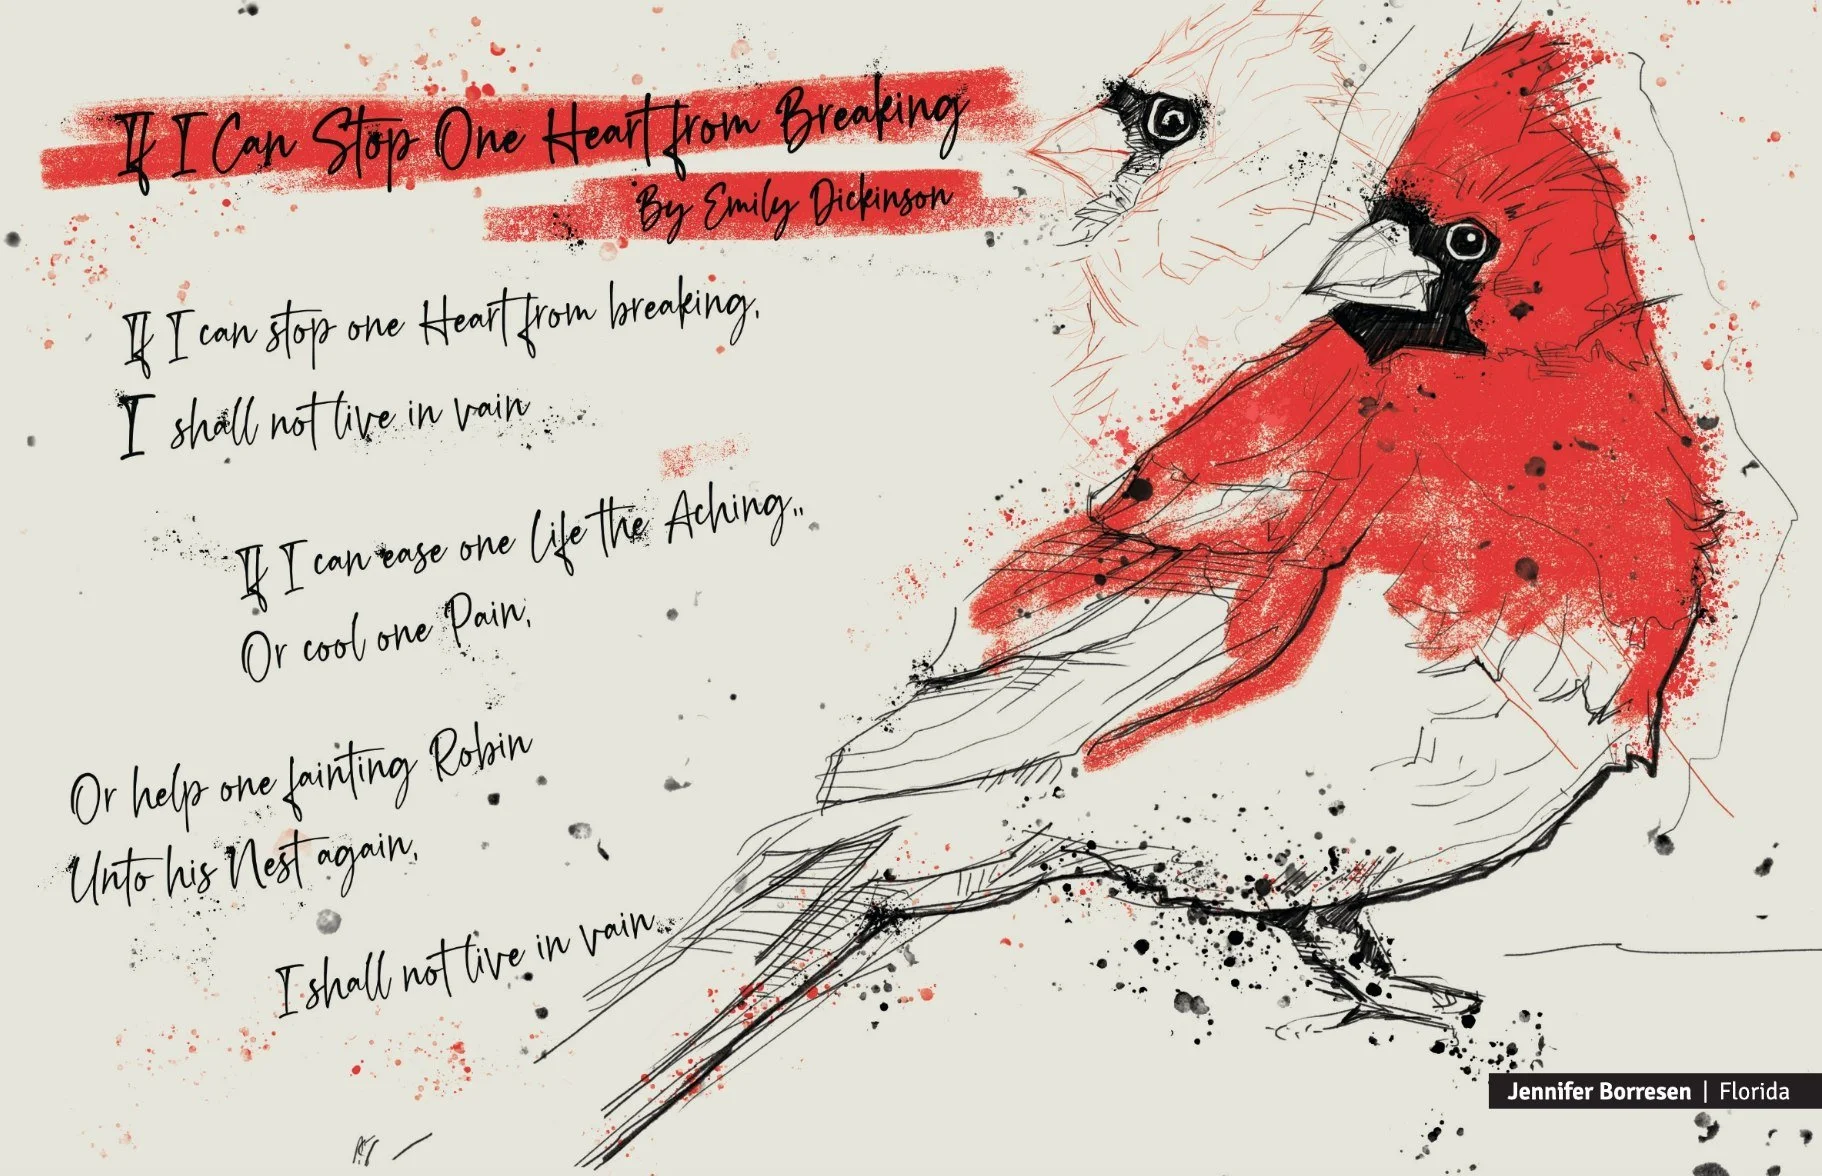 If I Can Stop One Heart from Breaking
By Emily Dickinson
If I can stop one Heart from breaking,
I shall not live in vain
If I can ease one Life the Aching,,
Or cool one Pain,
Or help one fainting Robin
Unto his Nest again,
I shall not live in vain.
Jennifer Borresen | Florida